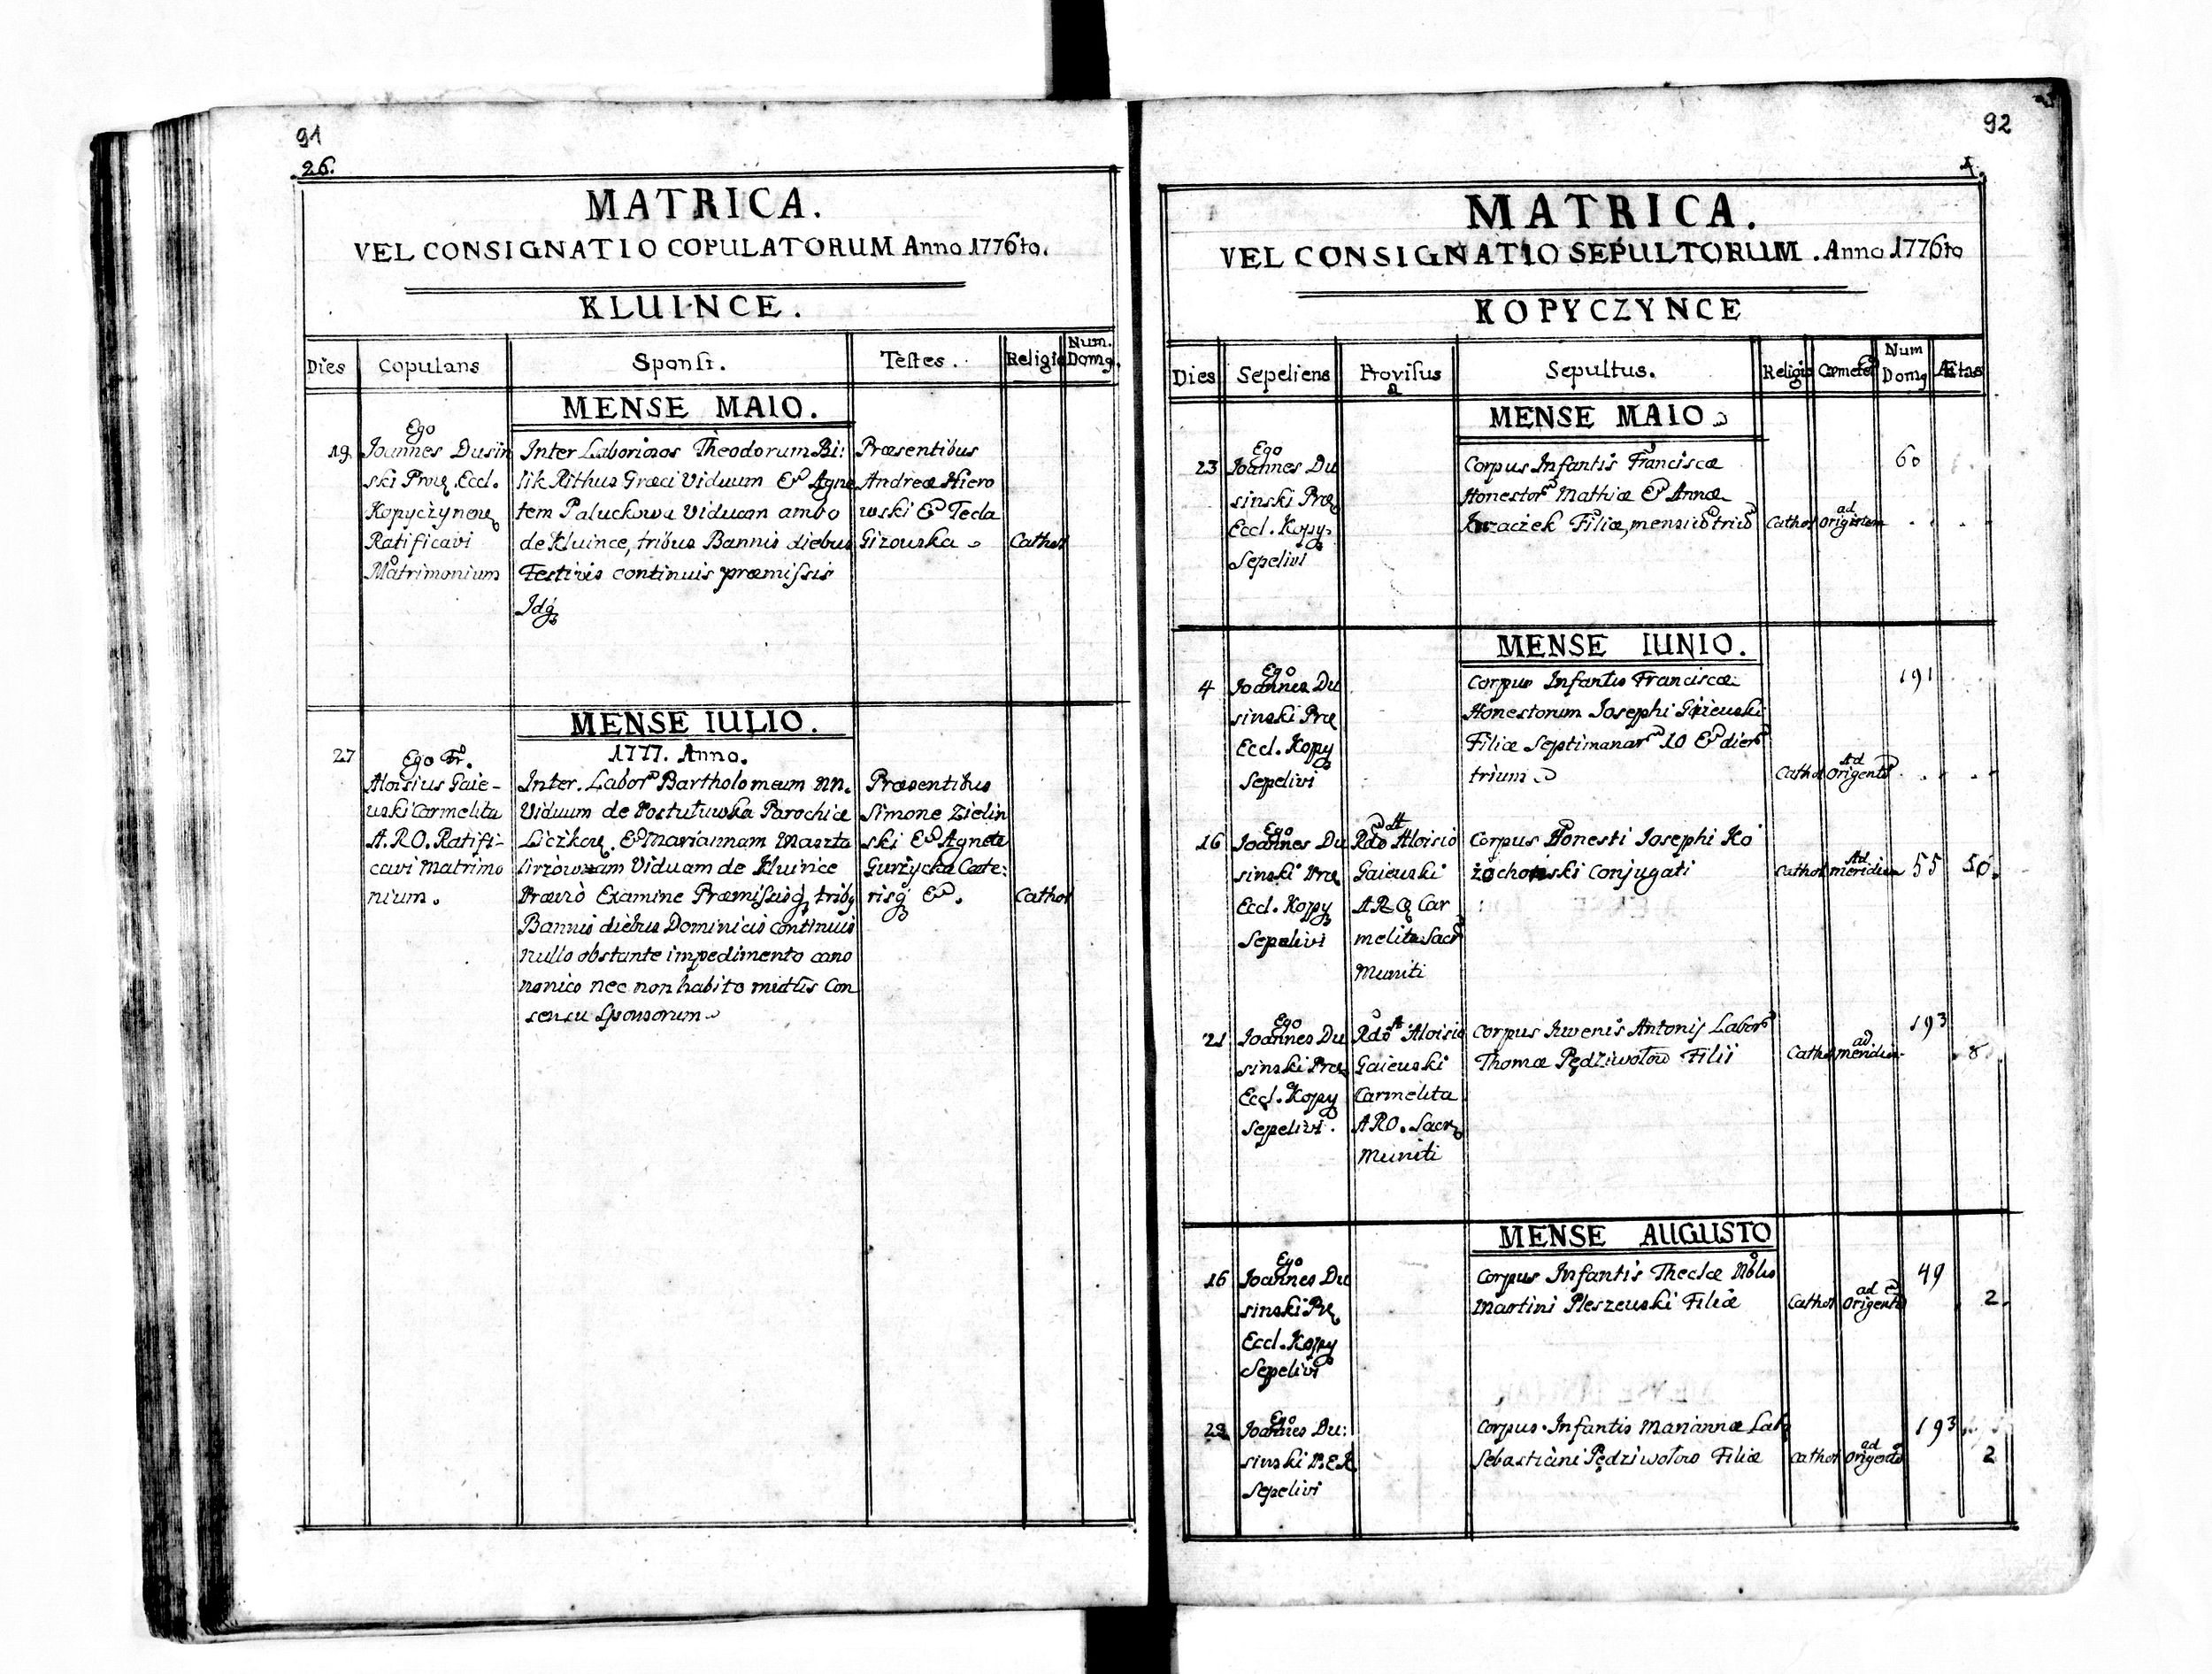 91
26.
MATRICA.
VEL CONSIGNATIO COPULATORUM Anno 1776to.
KLUINCE.
Dies
Copulans
Sponsi.
Testes.
Religio
Num. Domg.
MENSE MAIO.
19
Ego
Joannes Dusin
ski Præ Eccl.
Kopyczynen
Ratificavi
Matrimonium
Inter Laboriosos Theodorum Bi:
lik Rithus Græci Viduum & Agne
tem Paluckowa Viduam ambo
de Kluince, tribus Bannis diebus
Festivis continuis præmissis
Idq
Præsentibus
Andrea Hiero
wski & Tecla
Gizouska
Cathol
MENSE IULIO.
1777. Anno.
27
Ego Fr.
Aloisius Gaie-
uski Carmelita
A.R.O. Ratifi-
cavi Matrimo
nium.
Inter. Labor Bartholomeum NN.
Viduum de Postułuwka Parochiæ
Liczkow. & Mariannam
Viduam de Kluince
Prævio Examine Præmissisq tribg
Bannis diebus Dominicis continuis
nullo obstante impedimento cano
nonico nec non habito mutuis Con
sensu Sponsorum
Præsentibus
Simone Zielin
ski & Agnete
Gurzycka Cæte:
risq &.
Cathol
92
1.
MATRICA.
VEL CONSIGNATIO SEPULTORUM. Anno 1776to
KOPYCZYNCE
Dies
Sepeliens
Provisus a
Sepultus.
Religio
Cæmeter
Num Domg
Ætas
MENSE MAIO
23
Ego
Joannes Du
sinski Præ
Eccl. Kopy
Sepelivi
Corpus Infantis Franciscæ
Honestor Mathiæ & Annæ
Filiæ, mensium trium
Cathol
ad
Origintem
60
MENSE IUNIO.
4
Ego
Joannes Du
sinski Præ
Eccl. Kopy
Sepelivi
Corpus Infantis Franciscæ
Honestorum Josephi Gaieuski
Filiæ Septimanar 10 & dier
trium
Cathol
Ad
Origente
191
16
Ego
Joannes Du
sinski Præ
Eccl. Kopy
Sepelivi
Rdo Aloisio
Gaieuski
A.R.O. Car
melita Sacr
Muniti
Corpus Honesti Josephi Ko
żuchowski Conjugati
Cathol
Ad
meridiem
55
50.
21
Ego
Joannes Du
sinski Præ
Eccl. Kopy
Sepelivi.
Rdo Aloisio
Gaieuski
Carmelita
ARO. Sacr
Muniti
Corpus Iuvenis Antonij Labor
Thomæ Pędziwołow Filii
Cathol
ad
meridie
193
8
MENSE AUGUSTO
16
Ego
Joannes Du
sinski Præ
Eccl. Kopy
Sepelivi
Corpus Infantis Theclæ Nblis
Martini Pleszeuski Filiæ
Cathol
ad
Origente
49
2.
29
Ego
Joannes Du:
sinski P.E.K.
Sepelivi
Corpus Infantis Mariannæ Lab
Sebastiani Pędziwołow Filiæ
Cathol
ad
Origente
193
2